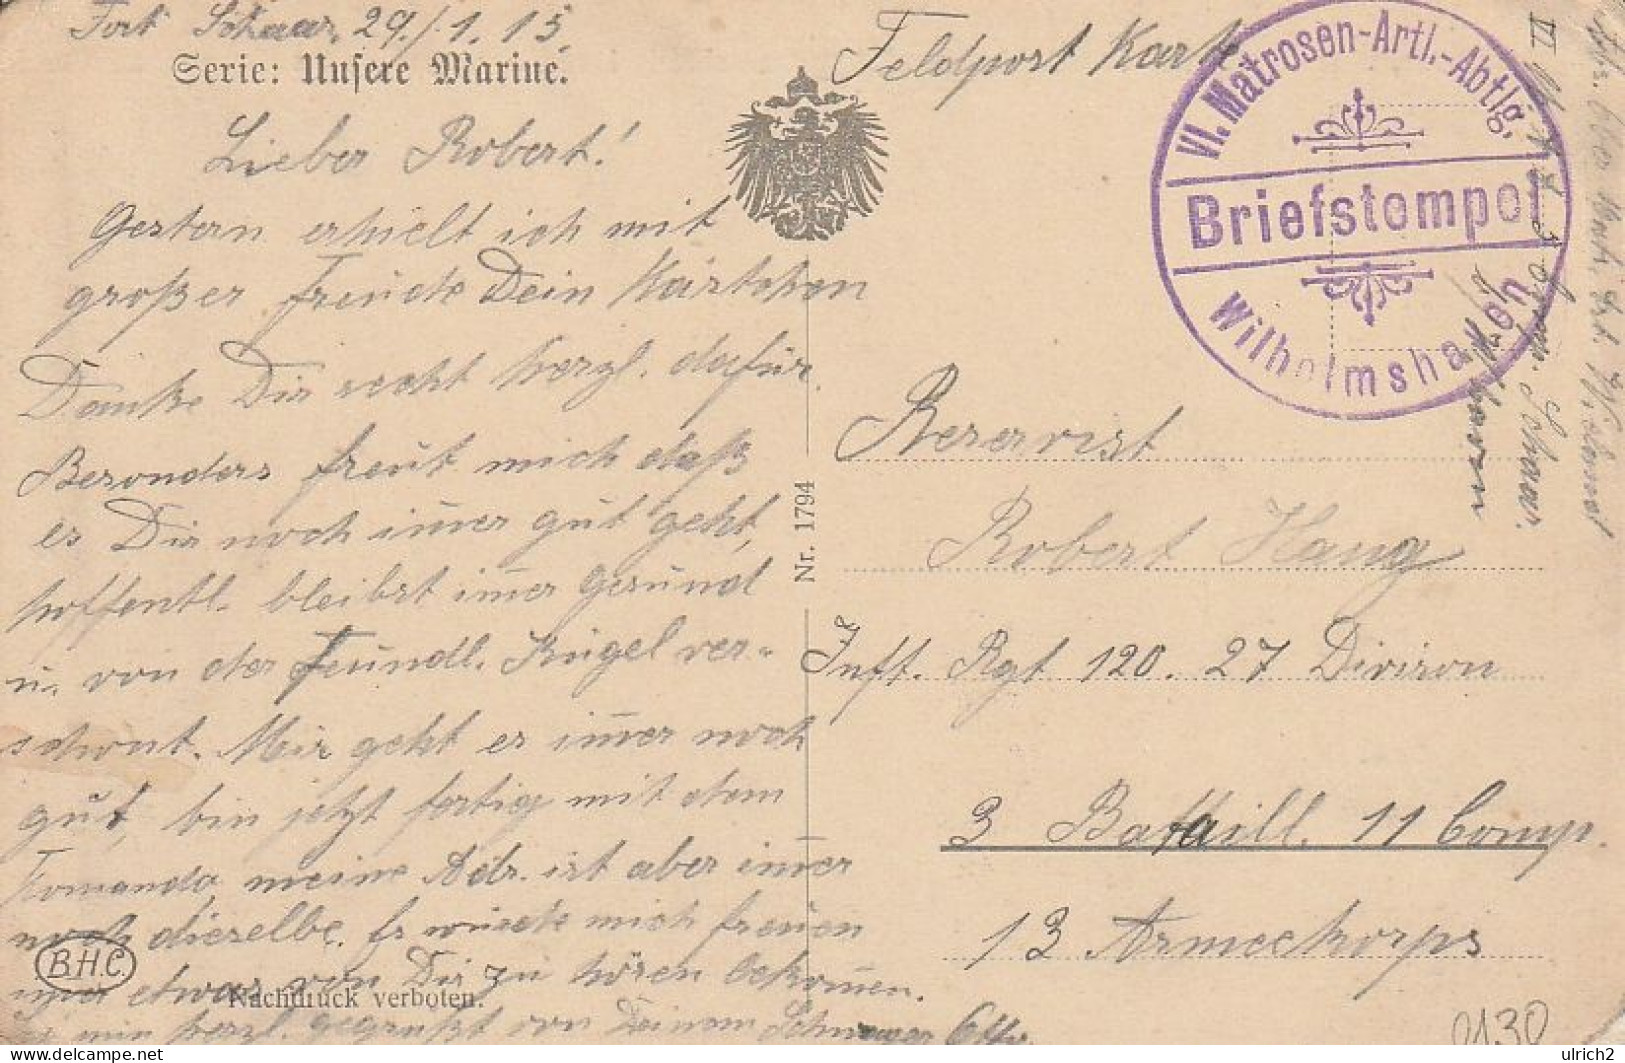 Fort Schaar, 29./1.15.
Serie: Unsere Marine.
Lieber Robert!
Gestern erhielt ich mit
großer Freude Dein Kärtchen
Danke Dir recht herzl. dafür.
Besonders freut mich daß
es Dir noch im̅er gut geht,
hoffentl. bleibst im̅er Gesund
u. von der feundl. Kugel ver-
schont. Mir geht es im̅er noch
gut, bin jetzt fertig mit dem
Komando, meine Adr. ist aber im̅er
noch dieselbe. Es würde mich freuen
etwas von Dir zu hören bekom̅en.
herzl. gegrüßt von Deinem Schwager Otto.
B.H.C.
Nachdruck verboten.
Nr. 1794
Feldpost Karte
VI. Matrosen-Artl.-Abtlg.
Briefstempel
Wilhelmshaven
Reservist
Robert Haug
Inft. Rgt 120. 27 Division
3 Bataill. 11 Comp.
13 Armeekorps
Abs. Otto
Schaar.
0130
ulrich2